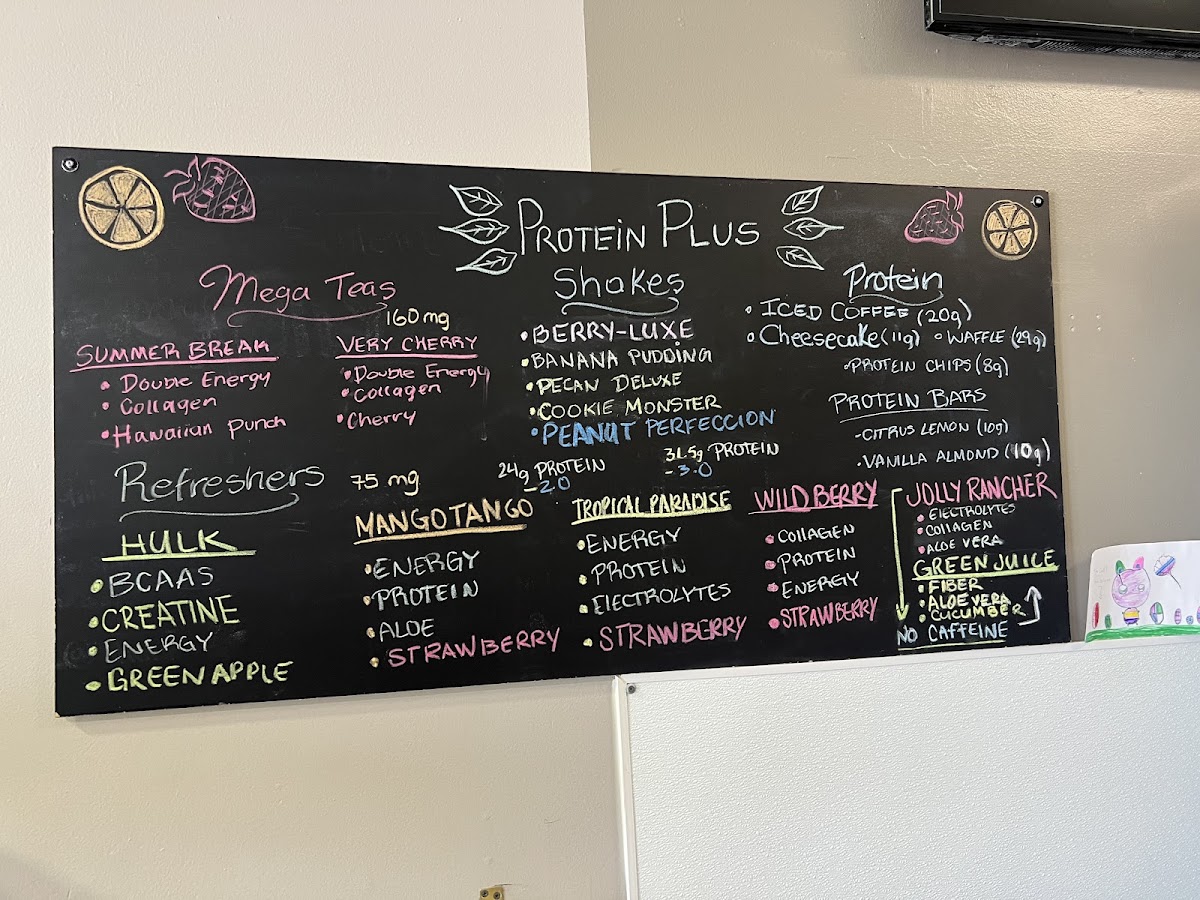 PROTEIN PLUS
Mega Teas
160mg
SUMMER BREAK
• Double Energy
• Collagen
• Hawaiian Punch
VERY CHERRY
• Double Energy
• Collagen
• Cherry
Shakes
• BERRY-LUXE
• BANANA PUDDING
• PECAN DELUXE
• COOKIE MONSTER
• PEANUT PERFECCION
24g PROTEIN
- 2.0
31.5g PROTEIN
- 3.0
Protein
• ICED COFFEE (20g)
• Cheesecake (11g) • WAFFLE (29g)
• PROTEIN CHIPS (8g)
PROTEIN BARS
- CITRUS LEMON (10g)
• VANILLA ALMOND (10g)
Refreshers 75 mg
HULK
• BCAAS
• CREATINE
• ENERGY
• GREEN APPLE
MANGO TANGO
• ENERGY
• PROTEIN
• ALOE
• STRAWBERRY
TROPICAL PARADISE
• ENERGY
• PROTEIN
• ELECTROLYTES
• STRAWBERRY
WILD BERRY
• COLLAGEN
• PROTEIN
• ENERGIY
• STRAWBERRY
JOLLY RANCHER
• ELECTROLYTES
• COLLAGEN
• ALOE VERA
GREEN JUICE
• FIBER
• ALOE VERA
• CUCUMBER
NO CAFFEINE